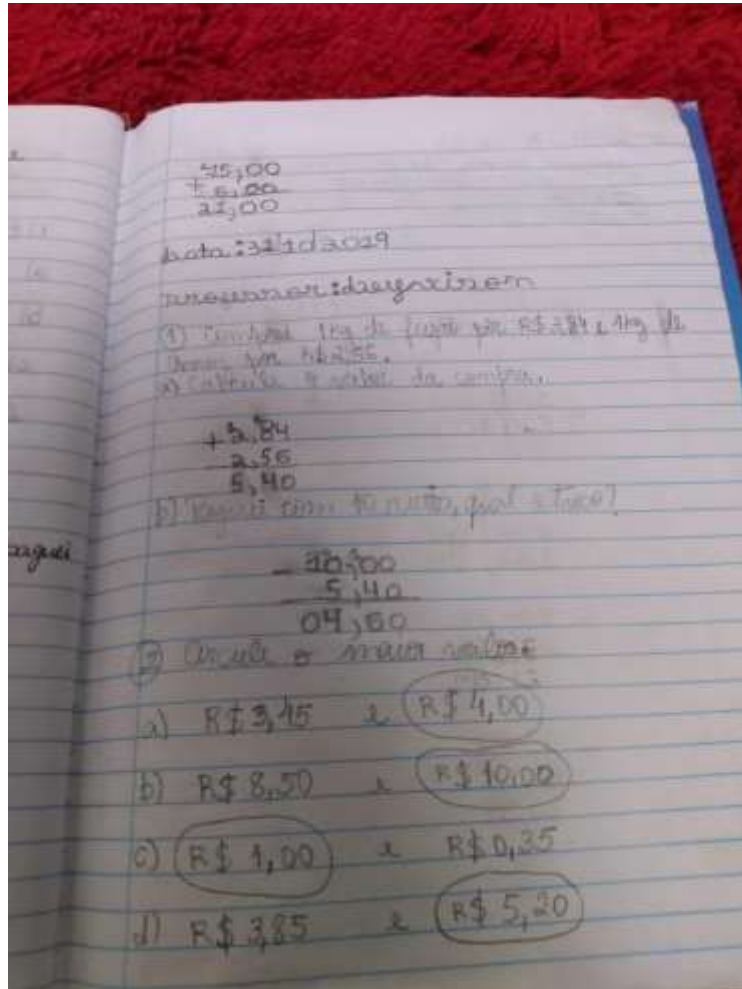 15,00
+ 6,00
21,00
Data: 31 10 2019
1) Comprei 1kg de feijão por R$ 2,84 e 1kg de
por R$ 2,56.
a) Calcule o valor da compra.
+ 2,84
2,56
5,40
b) Paguei com 10 qual o troco?
- 10,00
5,40
04,60
2) Circule o maior valor
a) R$ 3,45 e R$ 4,00
b) R$ 8,50 e R$ 10,00
c) R$ 1,00 e R$ 0,35
d) R$ 3,85 e R$ 5,20